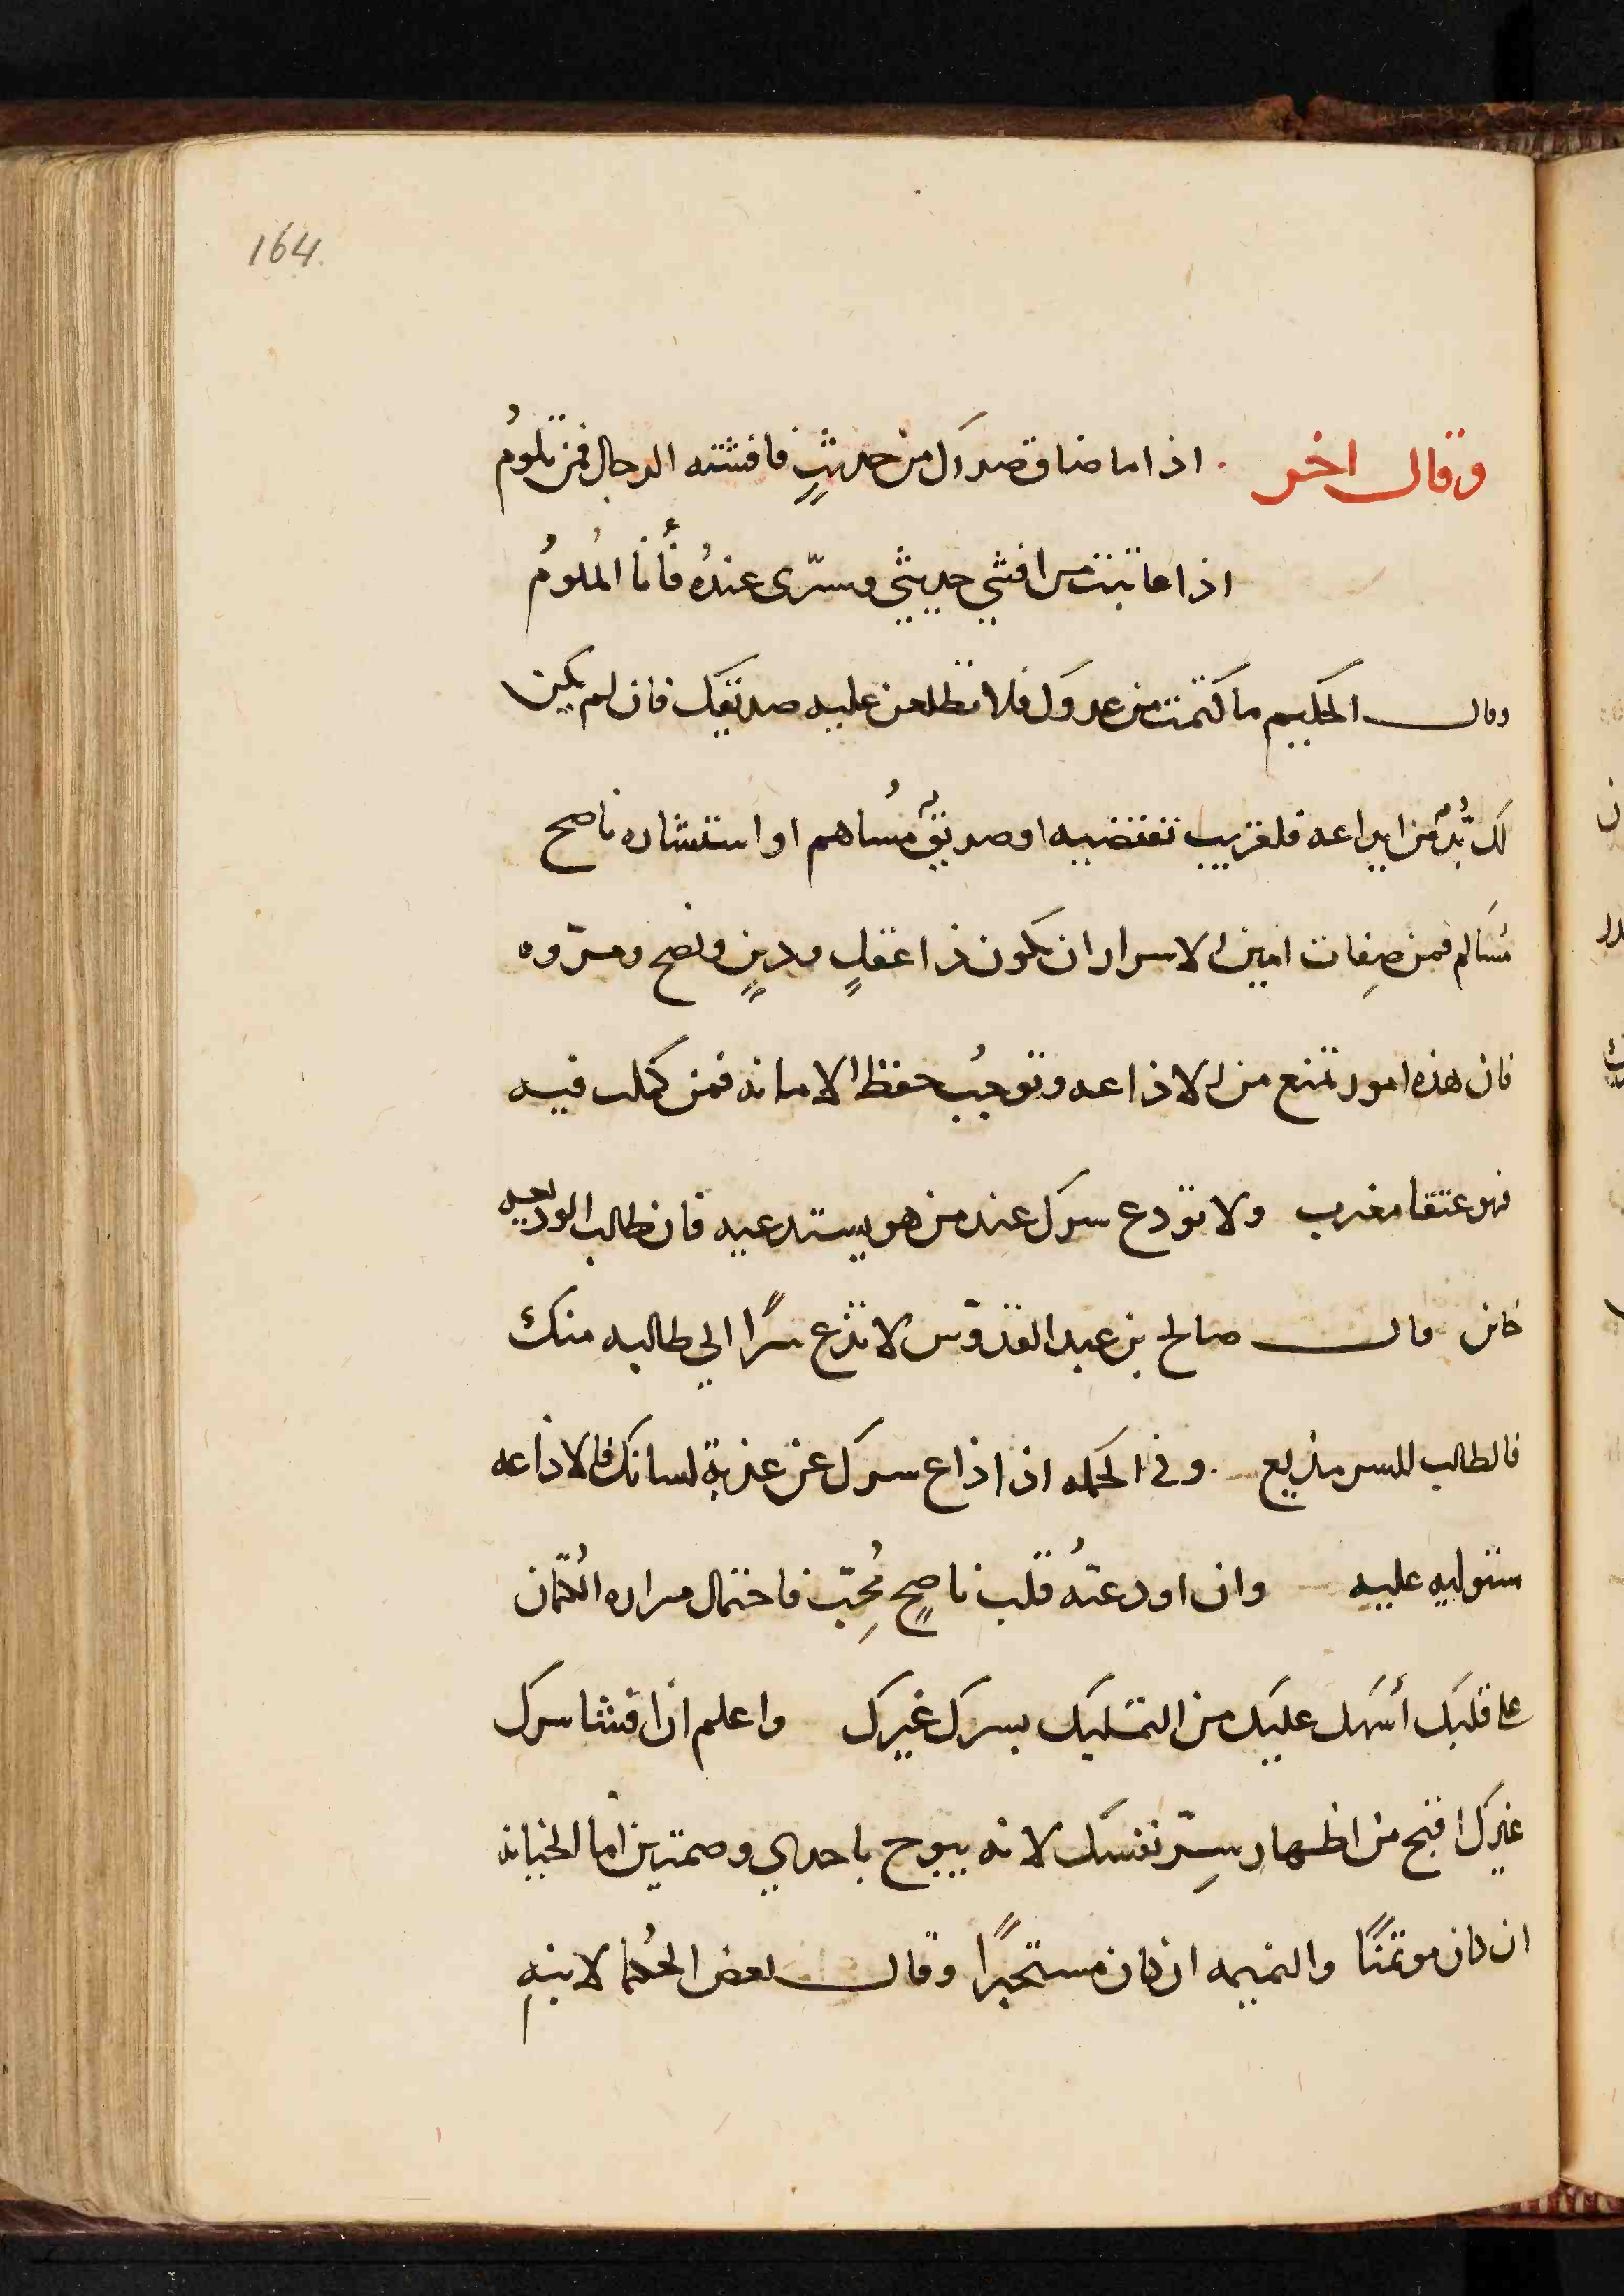 164
وقال اخر . اذا ما ضاق صدرك من حديثٍ فافشته الرجال فمن تلومُ
اذا عاتبت من افشي حديثي وسرّى عندهُ فأنا الملُومُ
وقال الحكيم ما كتمت من عدوك فلا تطلعن عليه صديقك فان لم يكن
لك بُدٌّ من ايداعه فلقريب تقتضيه او صديقٌ مُساهم او استشاره ناصح
مُسَالم فمن صِفات امين الاسرار ان يكون ذا عقلٍ ودينٍ ونصح ومرّوه
فان هذه امور تمنع من الاذاعه وتوجبُ حفظ الامانه فمن كملت فيه
فهو عنقا مغرب ولا تودع سرك عند من هو يستدعيه فان طالب الوديعه
خاين قال صالح بن عبد القدّوس لا تذع سرًا الي طالبه منك
فالطالب للسر مذيع . وفى الحكمه اذا اذاع سرك عن عذبة لسانك فالاذاعه
ستوليه عليه وان اودعتهُ قلب ناصحٍ مُحِبّ فاحتمال مراره الكُتمان
على قلبك أسَهل عليك من التمليك بسرك غيرك واعلم ان افشا سرك
غيرك اقبح من اظهار سِرّ نفسك لانه يبوح باحدي وصمتين اما الخيانه
ان كان موتمنًا والنميمه ان كان مستخبرًا وقال بعض الحُكما لابنهِ